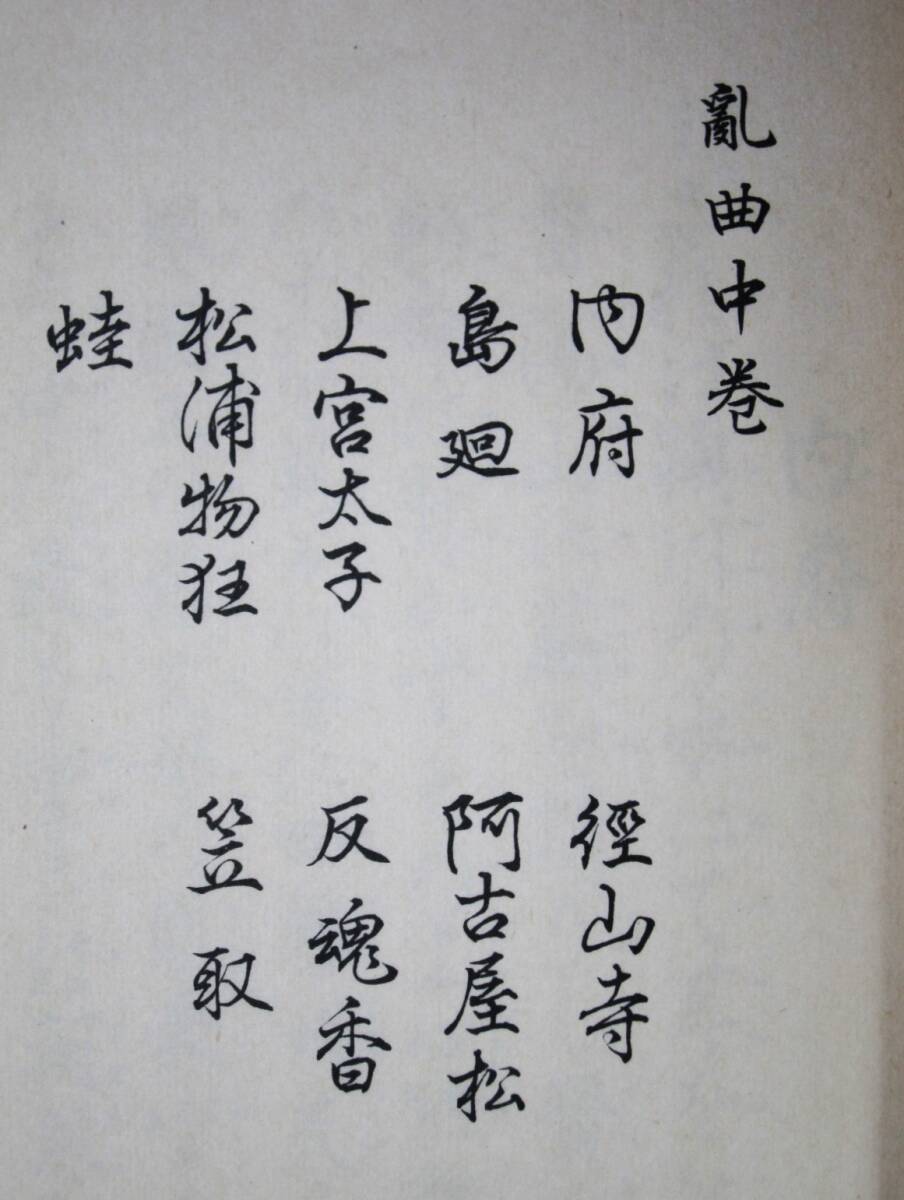 亂曲中巻
内府 徑山寺
島廻 阿古屋松
上宮太子 反魂香
松浦物狂 笠取
蛙